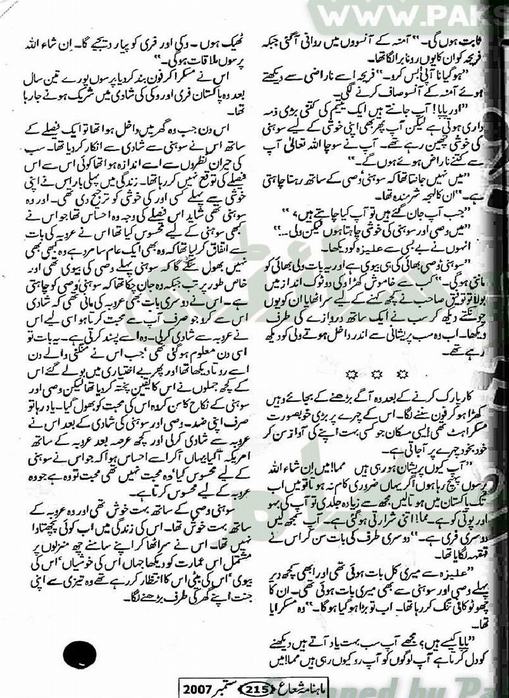 WWW.PAKS
ثابت ہوں گی۔" آمنہ کے آنسوؤں میں روانی آ گئی جبکہ
فریحہ کو ان کا یوں رونا برا لگا تھا۔
"ہو گیا نا آنٹی! بس کرو۔" فریحہ اسے ناراضی سے دیکھتے
ہوئے آمنہ کے آنسو صاف کرنے لگی۔
"اور پاپا! آپ جانتے ہیں ایک یتیم کی کتنی بڑی ذمہ
داری ہوتی ہے لیکن آپ پھر بھی اپنی خوشی کے لیے سوہنی
کی خوشی چھین رہے تھے۔ آپ نے سوچا اللہ تعالیٰ آپ
سے کتنے ناراض ہوئے ہوں گے۔"
"میں نہیں جانتا تھا کہ سوہنی، وصی کے ساتھ رہنا چاہتی
ہے۔" ان کا لہجہ شرمندہ تھا۔
"جب آپ جان گئے ہیں تو آپ کیا چاہتے ہیں؟"
"میں وصی اور سوہنی کی خوشی چاہتا ہوں لیکن ولی۔۔"
انہوں نے بے بسی سے علیزہ کو دیکھا۔
"سوہنی، وصی بھائی کی ہی بیوی ہے اور یہ بات ولی بھائی کو
ماننی ہو گی۔" کب سے خاموش کھڑا وکی دو ٹوک انداز میں
بولا تو توفیق صاحب نے کچھ کہنے کے لیے سر اٹھایا ان کو یوں
چونکتے دیکھ کر سب نے ایک ساتھ دروازے کی طرف
دیکھا۔ اب وہ سب پریشانی سے اندر داخل ہوتے ولی کو دیکھ
رہے تھے۔
* * *
کار پارک کرنے کے بعد وہ آگے بڑھنے کے بجائے وہیں
کھڑا ہو کر فون سننے لگا۔ اس کے چہرے پر بڑی خوبصورت
مسکراہٹ تھی، ایسی مسکان جو کسی بہت اپنے کی آواز سن کر
خود بخود چہرے پر آ جاتی ہے۔
"آپ کیوں پریشان ہو رہی ہیں مما! میں ان شاء اللہ
پرسوں پہنچ رہا ہوں اگر یہاں ضروری کام نہ ہوتا تو میں اب
تک پاکستان میں ہوتا لیں، مجھ سے زیادہ جلدی تو آپ کی بہو
اور پوتی کو ہے۔ مما! اتنی شرارتی ہو گئی ہے۔ آپ سمجھ لیں
دوسری فری ہے۔" دوسری طرف کی بات سن کر اس نے
قہقہہ لگایا تھا۔
"علیزہ سے میری کل بات ہوئی تھی اور ابھی کچھ دیر
پہلے وصی اور سوہنی سے بھی میری بات ہوئی تھی۔ ان کا
چھوٹو کافی تنگ کر رہا تھا۔ اب تو بڑا ہو گیا ہو گا۔" وہ مسکرایا
تھا۔
"پاپا کیسے ہیں؟ مجھے آپ سب بہت یاد آتے ہیں دیکھنے
کو دل کرتا ہے آپ لوگوں کو آپ رو کیوں رہی ہیں مما! میں
ٹھیک ہوں۔ وکی اور فری کو پیار دیجیے گا۔ ان شاء اللہ
پرسوں ملاقات ہو گی۔"
اس نے مسکرا کر فون بند کر دیا پرسوں پورے تین سال
بعد وہ پاکستان فری اور وکی کی شادی میں شریک ہونے جا رہا
تھا۔
اس دن جب وہ گھر میں داخل ہوا تھا تو ایک فیصلے کے
ساتھ اس نے سوہنی سے شادی سے انکار کر دیا تھا۔ سب
کی حیران نظروں سے اسے اندازہ ہوا تھا کوئی اس سے اس
فیصلے کی توقع نہیں کر رہا تھا۔ زندگی میں پہلی بار اس نے اپنی
خوشی سے پہلے کسی اور کی خوشی کو ترجیح دی تھی۔ اور وہ
سوہنی تھی شاید اس فیصلے کی وجہ وہ احساس تھا جو اس نے
کبھی سوہنی کے لیے محسوس کیا تھا اس نے عروبہ کی بات
سے اتفاق کر لیا تھا کہ وہ بھی ایک عام سا مرد ہے وہ کبھی بھی
نہیں بھول سکے گا کہ سوہنی پہلے وصی کی بیوی تھی اور
خاص طور پر تب جبکہ وہ جان چکا تھا کہ سوہنی وصی کو چاہتی
ہے۔ اس نے دوسری بات بھی عروبہ کی مانی تھی کہ شادی
اس سے کرو جو صرف آپ سے محبت کرتا ہو اسی لیے اس
نے عروبہ سے شادی کر لی۔ وہ اسے پسند کرتی ہے۔ یہ بات تو
اسی دن معلوم ہو گئی تھی جب اس نے منگنی والے دن
اسے روتا دیکھا تھا اور پھر بے اختیاری میں بولے گئے اس
کے کچھ جملوں نے اس کا یقین پختہ کر دیا تھا لیکن وصی اور
سوہنی کے نکاح کا سن کر وہ اس کی محبت کو بھول گیا۔ یاد رہا تو
صرف اپنی ضد۔ وصی اور سوہنی کی شادی کے بعد اس نے
عروبہ سے شادی کر لی اور کچھ عرصہ بعد عروبہ کے ساتھ
امریکہ آ گیا یہاں آ کر اسے احساس ہوا کہ جو اس نے سوہنی
کے لیے محسوس کیا وہ محبت نہیں تھی محبت تو وہ ہے جو وہ
عروبہ کے لیے محسوس کرتا ہے۔
سوہنی وصی کے ساتھ بہت خوش تھی اور وہ عروبہ کے
ساتھ بہت خوش تھا۔ اس کی زندگی میں اب کوئی پچھتاوا
نہیں تھا۔ اس نے سر اٹھا کر اپنے سامنے چھ منزلوں پر
مشتمل اس عمارت کو دیکھا جہاں اس کی خوشیاں اس کی
بیوی، اس کی بیٹی اس کا انتظار کر رہے تھے وہ تیزی سے اپنی
جنت اپنے گھر کی طرف بڑھنے لگا۔
ماہنامہ شعاع 215 ستمبر 2007